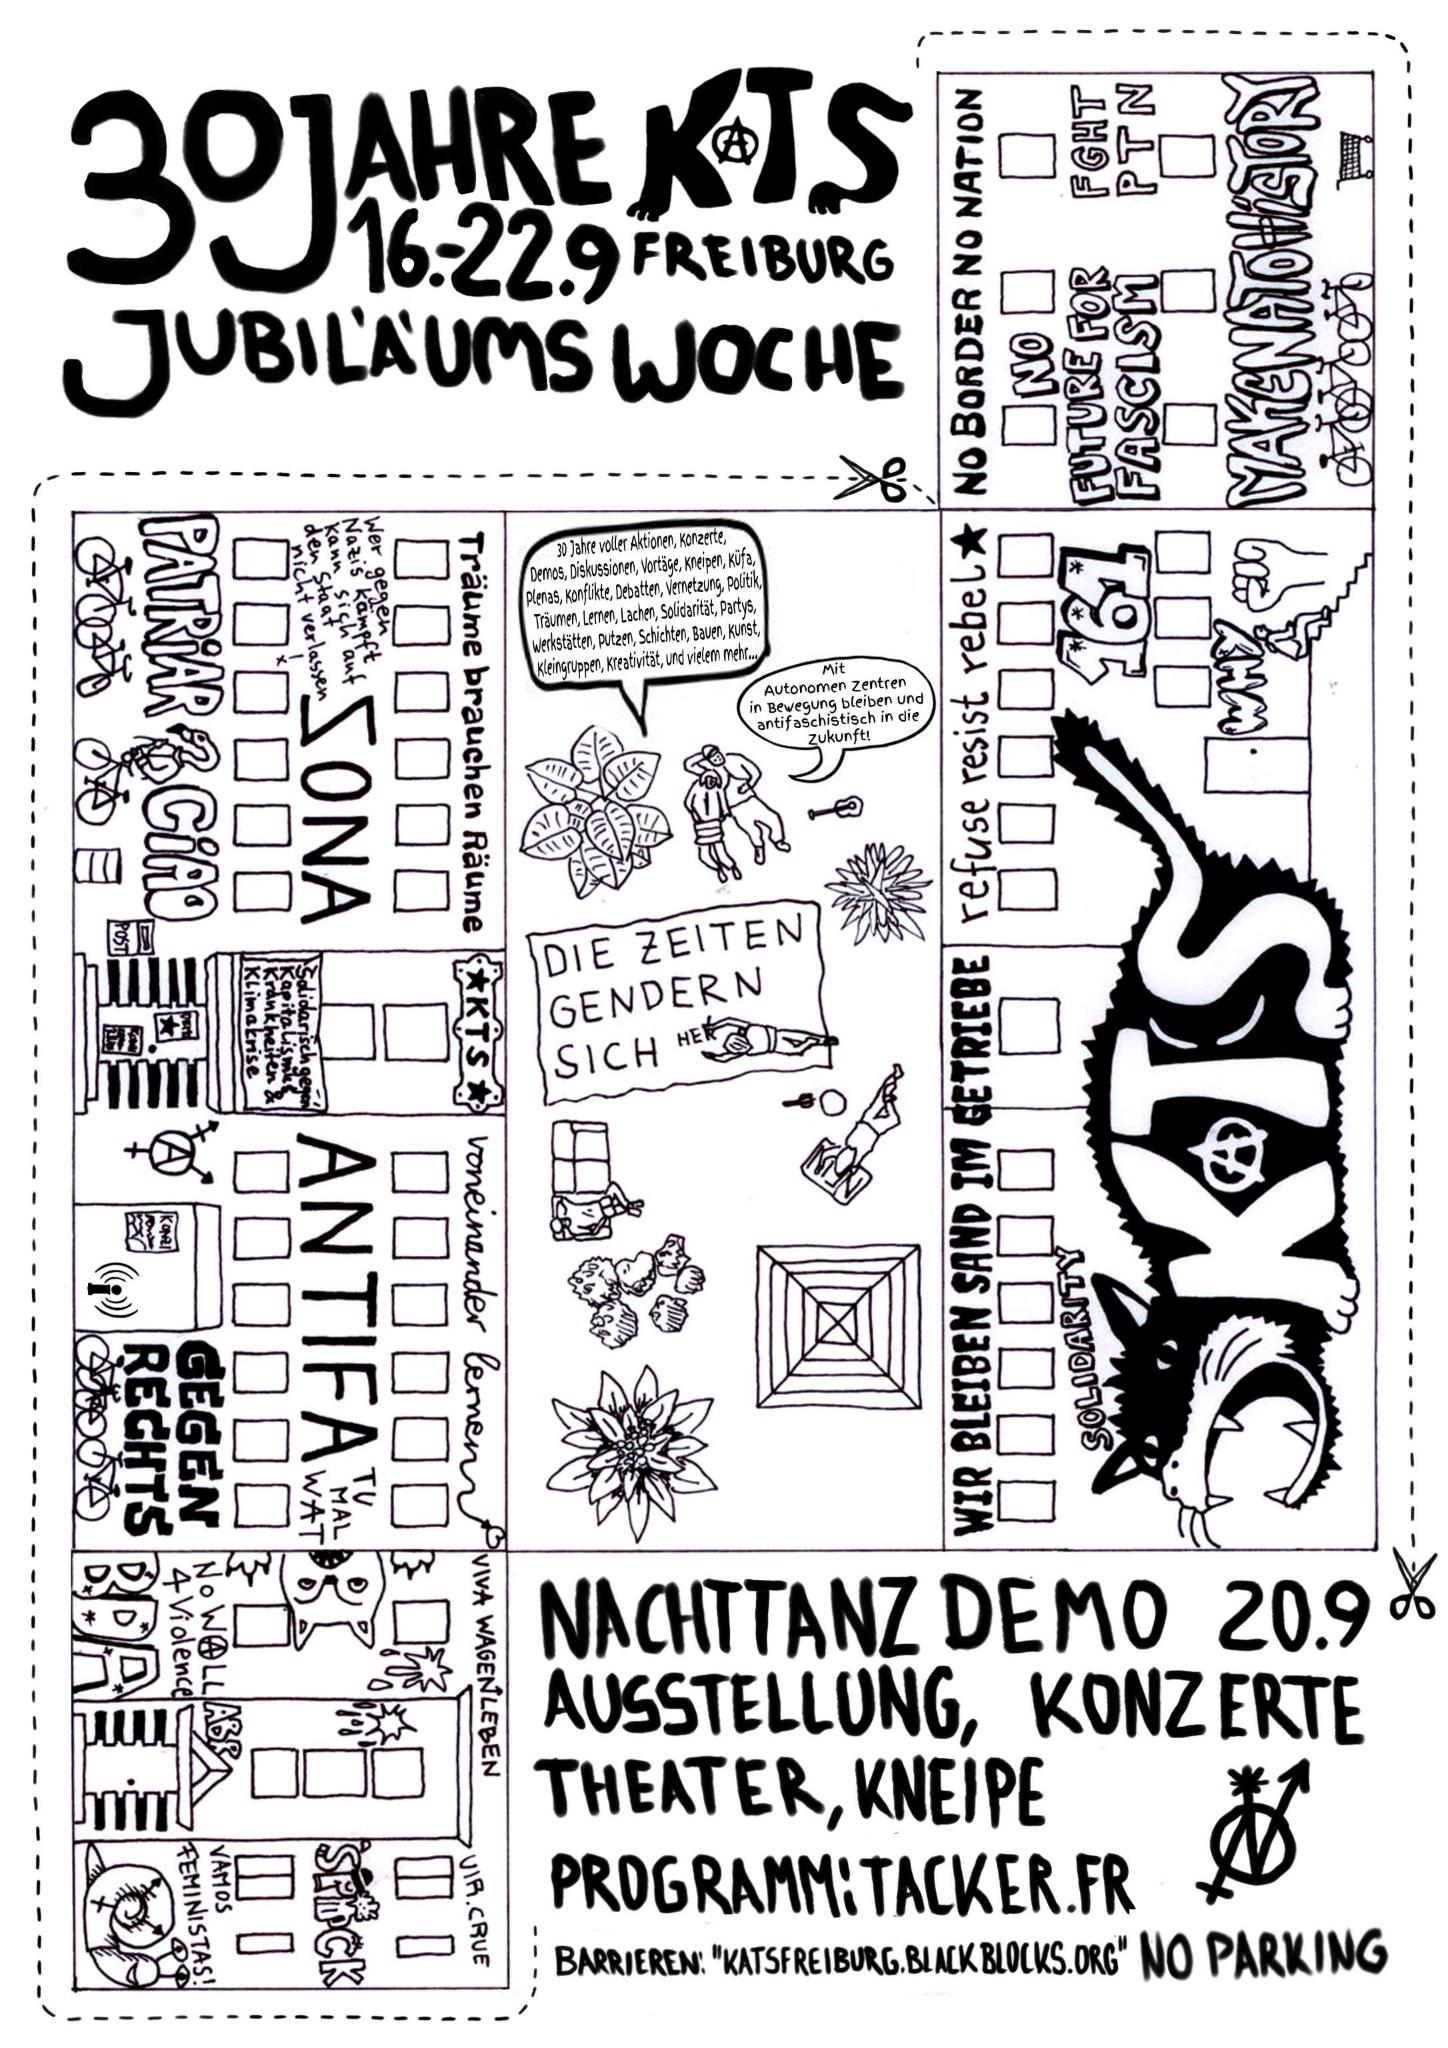 30 JAHRE KTS
16.-22.9 FREIBURG
JUBILÄUMS WOCHE
NO BORDER NO NATION
NO
FUTURE FOR
FASCISM
FGHT
PTN
MAKE NATO HISTORY
30 Jahre voller Aktionen, Konzerte,
Demos, Diskussionen, Vortäge, Kneipen, Küfa,
Plenas, Konflikte, Debatten, Vernetzung, Politik,
Träumen, Lernen, Lachen, Solidarität, Partys,
Werkstätten, Putzen, Schichten, Bauen, Kunst,
Kleingruppen, Kreativität, und vielem mehr...
Mit
Autonomen Zentren
in Bewegung bleiben und
antifaschistisch in die
Zukunft!
DIE ZEITEN
GENDERN
SICH HER
Träume brauchen Räume
Wer gegen
Nazis kämpft
kann sich auf
den Staat
nicht verlassen
!
ZONA
PATRIAR
CIAO
POST
★KTS★
Solidarisch gegen
Kapitalismus
Krankheiten &
Klimakrise
voneinander lernen
ANTIFA
TU
MAL
WAT
GEGEN
RECHTS
VIVA WAGENLEBEN
NO WALL
4 Violence
ABR
VIA.CRUE
VAMOS
FEMINISTAS!
refuse resist rebel★
161
WIR BLEIBEN SAND IM GETRIEBE
SOLIDARITY
KTS
NACHTTANZ DEMO 20.9
AUSSTELLUNG, KONZERTE
THEATER, KNEIPE
PROGRAMM: TACKER.FR
BARRIEREN: "KATSFREIBURG.BLACKBLOCKS.ORG" NO PARKING